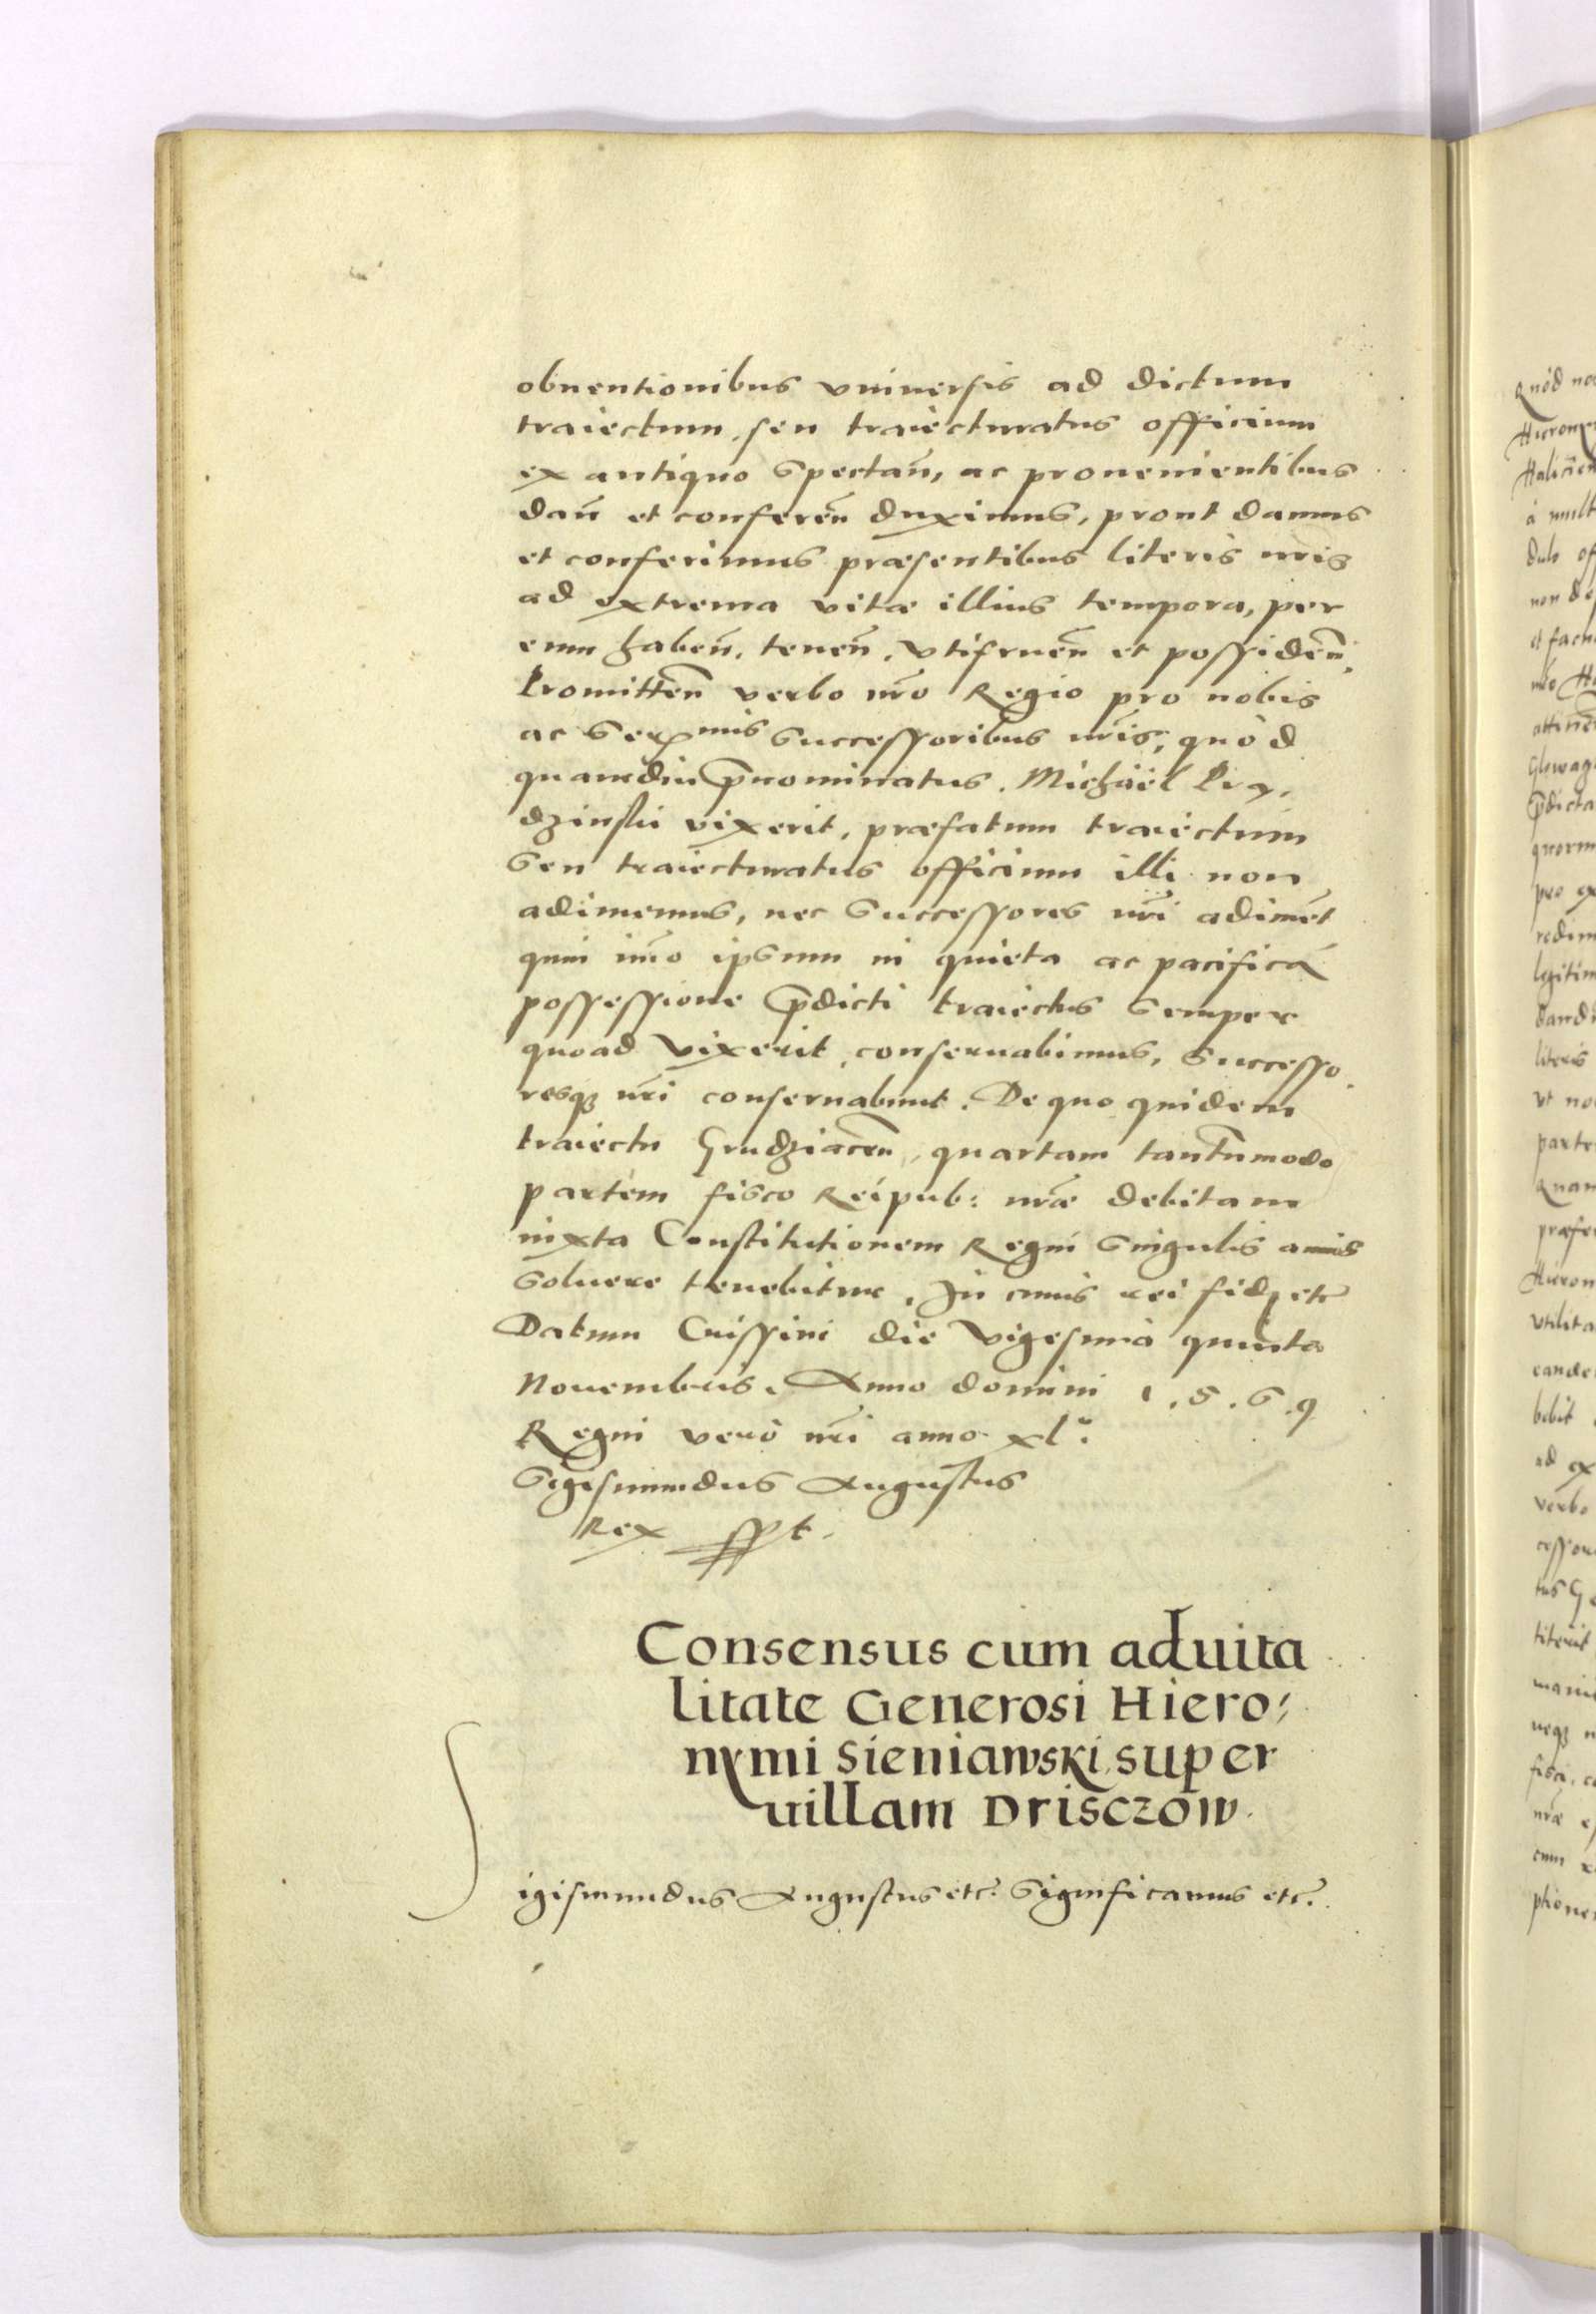 obuentionibus vniuersis ad dictum
traiectum, seu traiecturatus officium
ex antiquo spectañ, ac prouenientibus
dañ et confereñ duximus, prout damus
et conferimus præsentibus literis nris
ad extrema vitæ illius tempora, per
eum habeñ, teneñ, vtifrueñ et possideñ,
Promitteñ verbo nr̃o Regio pro nobis
ac Ser mis Successoribus nr̃is, quòd
quamdiu p̃nominatus Michäel Pry,
dzinski vixerit, præfatum traiectum
seu traiecturatus officium illi non
adimemus, nec successores nr̃i adimẽt
quin im̃o ipsum in quieta ac pacifica
possessione p̃dicti traiectus semper
quoad vixerit conseruabimus, successo
resq; nr̃i conseruabunt. De quo quidem
traiectu Grudziaceñ, quartam tantũmodo
partem fisco Reipub: nræ debitam
iuxta Constitutionem Regni singulis annis
soluere tenebitur. In cuius rei fid etc
Datum Cnissini die vigesima quinta
Nouembris. Anno domini 1.5.6.9
Regni verò nr̃i anno xl°.
Sigismundus Augustus
Rex sspt.
Consensus cum aduita
litate Generosi Hiero;
nymi Sieniawski super
uillam Drisczow.
Sigismundus Augustus etc. Significamus etc.
Quòd no
Hierony
à mult
non de
et fact
p̃dicta
quorum
pro ex
redim
legitim
dandi
literis
vt no
parte
Quam
præfer
Hieron
vtilita
bebit
ad ex
verbo
cessor
neq; n
nræ e